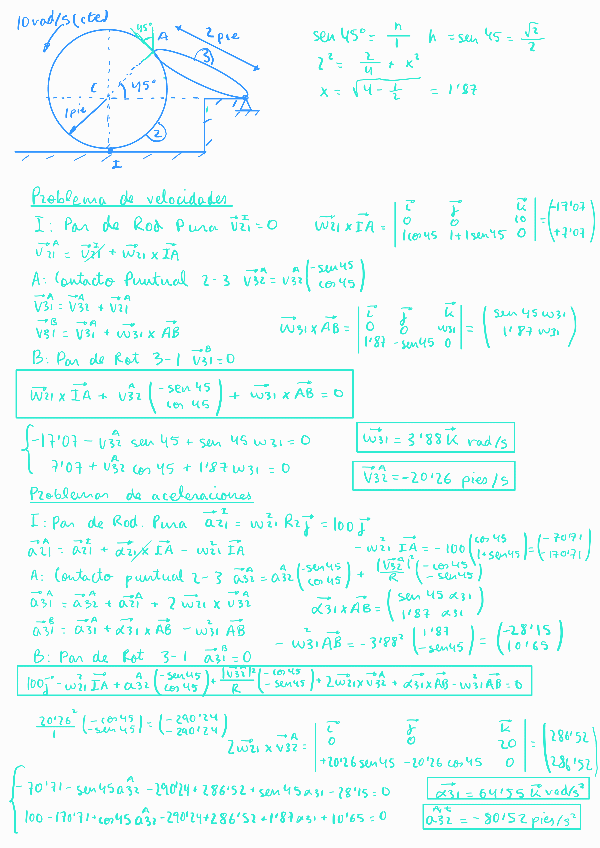 10 rad/s (cte)
45º
A
2 pie
3
C
45º
B
1 pie
2
I
sen 45º = h/1 h = sen 45 = √2/2
2² = 2/4 + x²
x = √(4 - 1/2) = 1'87
Problema de velocidades
I: Par de Rod Pura v21^I = 0 w21 x IA = | i j k ; 0 0 10 ; 1cos45 1+1sen45 0 | = (-17'07 ; +7'07)
v21^A = v21^I + w21 x IA
A: Contacto Puntual 2-3 v32^A = v32^A (-sen 45 ; cos 45)
v31^A = v32^A + v21^A
v31^B = v31^A + w31 x AB w31 x AB = | i j k ; 0 0 w31 ; 1'87 -sen45 0 | = (sen 45 w31 ; 1'87 w31)
B: Par de Rot 3-1 v31^B = 0
w21 x IA + v32^A (-sen 45 ; cos 45) + w31 x AB = 0
-17'07 - v32^A sen 45 + sen 45 w31 = 0 w31 = 3'88 k rad/s
7'07 + v32^A cos 45 + 1'87 w31 = 0 v32^A = -20'26 pies/s
Problemas de aceleraciones
I: Par de Rod. Pura a21^I = w21² R2 j = 100 j
a21^A = a21^I + α21 x IA - w21² IA -w21² IA = -100 (cos45 ; 1+sen45) = (-70'71 ; -170'71)
A: Contacto puntual 2-3 a32^A = a32^A (-sen45 ; cos45) + |v32^A|²/R (-cos45 ; -sen45)
a31^A = a32^A + a21^A + 2 w21 x v32^A α31 x AB = (sen 45 α31 ; 1'87 α31)
a31^B = a31^A + α31 x AB - w31² AB -w31² AB = -3'88² (1'87 ; -sen45) = (-28'15 ; 10'65)
B: Par de Rot 3-1 a31^B = 0
100j - w21² IA + a32^A (-sen45 ; cos45) + |v32^A|²/R (-cos45 ; -sen45) + 2w21 x v32^A + α31 x AB - w31² AB = 0
20'26²/1 (-cos45 ; -sen45) = (-290'24 ; -290'24)
2w21 x v32^A = | i j k ; 0 0 20 ; +20'26 sen45 -20'26 cos45 0 | = (286'52 ; 286'52)
-70'71 - sen45 a32^A - 290'24 + 286'52 + sen45 α31 - 28'15 = 0 α31 = 64'55 k rad/s²
100 - 170'71 + cos45 a32^A - 290'24 + 286'52 + 1'87 α31 + 10'65 = 0 a32^A t = -80'52 pies/s²